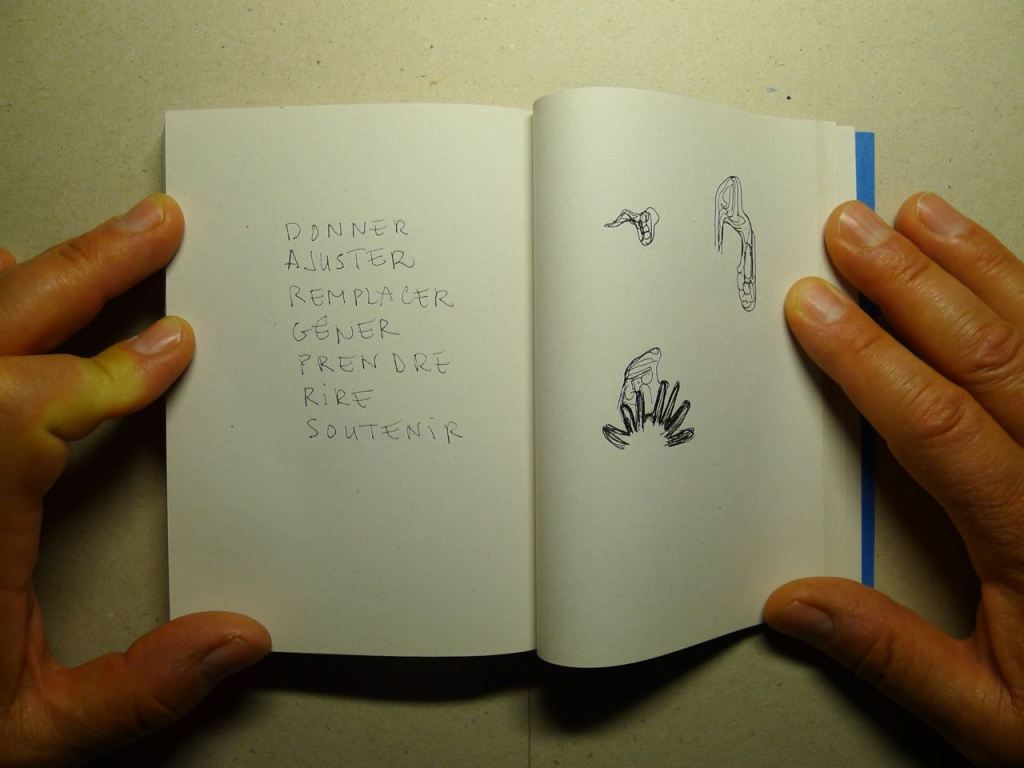 DONNER
AJUSTER
REMPLACER
GÊNER
PRENDRE
RiRE
SOUTENiR